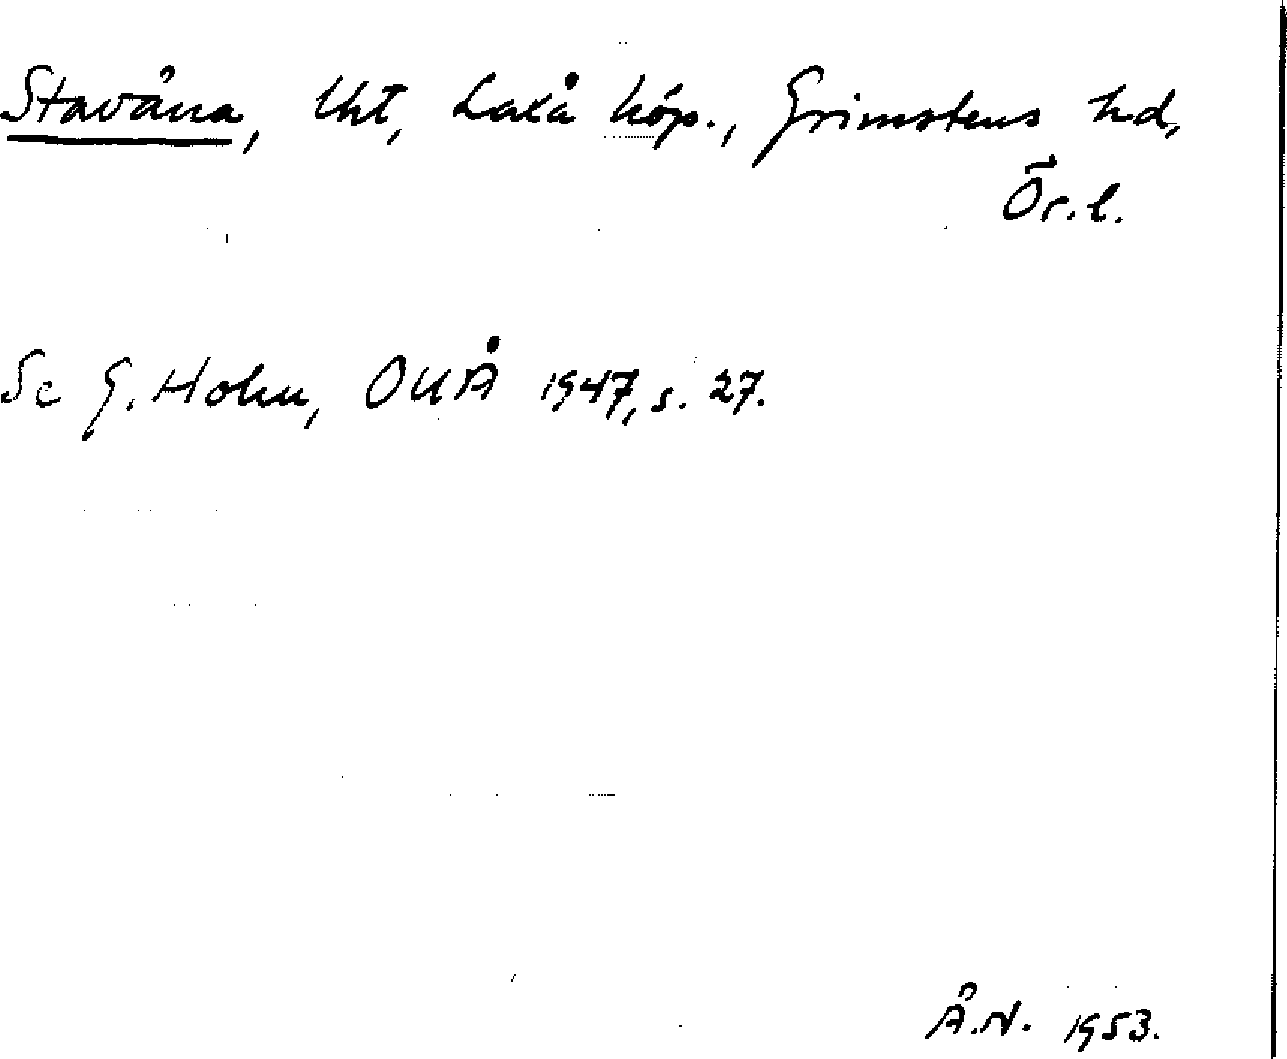 Stavåna, lht, Laxå köp., Grimstens hd,
Ör. l.
Se G. Holm, OUÅ 1947, s. 27.
Å.N. 1953.